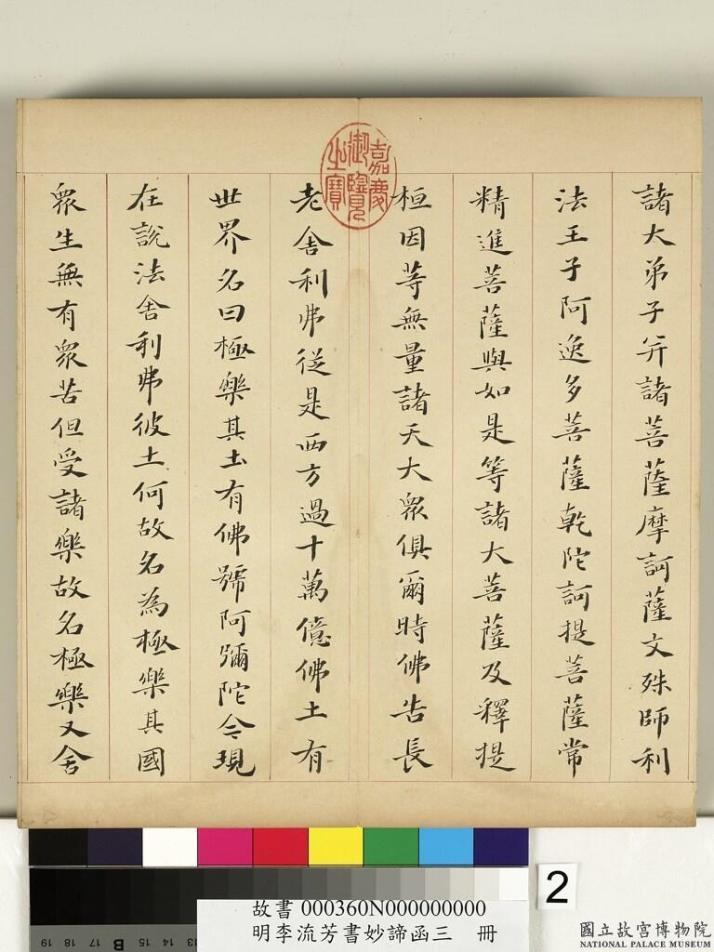 諸大弟子并諸菩薩摩訶薩文殊師利
法王子阿逸多菩薩乾陀訶提菩薩常
精進菩薩與如是等諸大菩薩及釋提
桓因等無量諸天大衆俱爾時佛告長
老舍利弗從是西方過十萬億佛土有
世界名曰極樂其土有佛號阿彌陀今現
在說法舍利弗彼土何故名為極樂其國
衆生無有衆苦但受諸樂故名極樂又舍
嘉慶御覽之寶
2
故書 000360N000000000
明李流芳書妙諦函三 冊
國立故宮博物院
NATIONAL PALACE MUSEUM
B
19 18 17 16 15 14 13